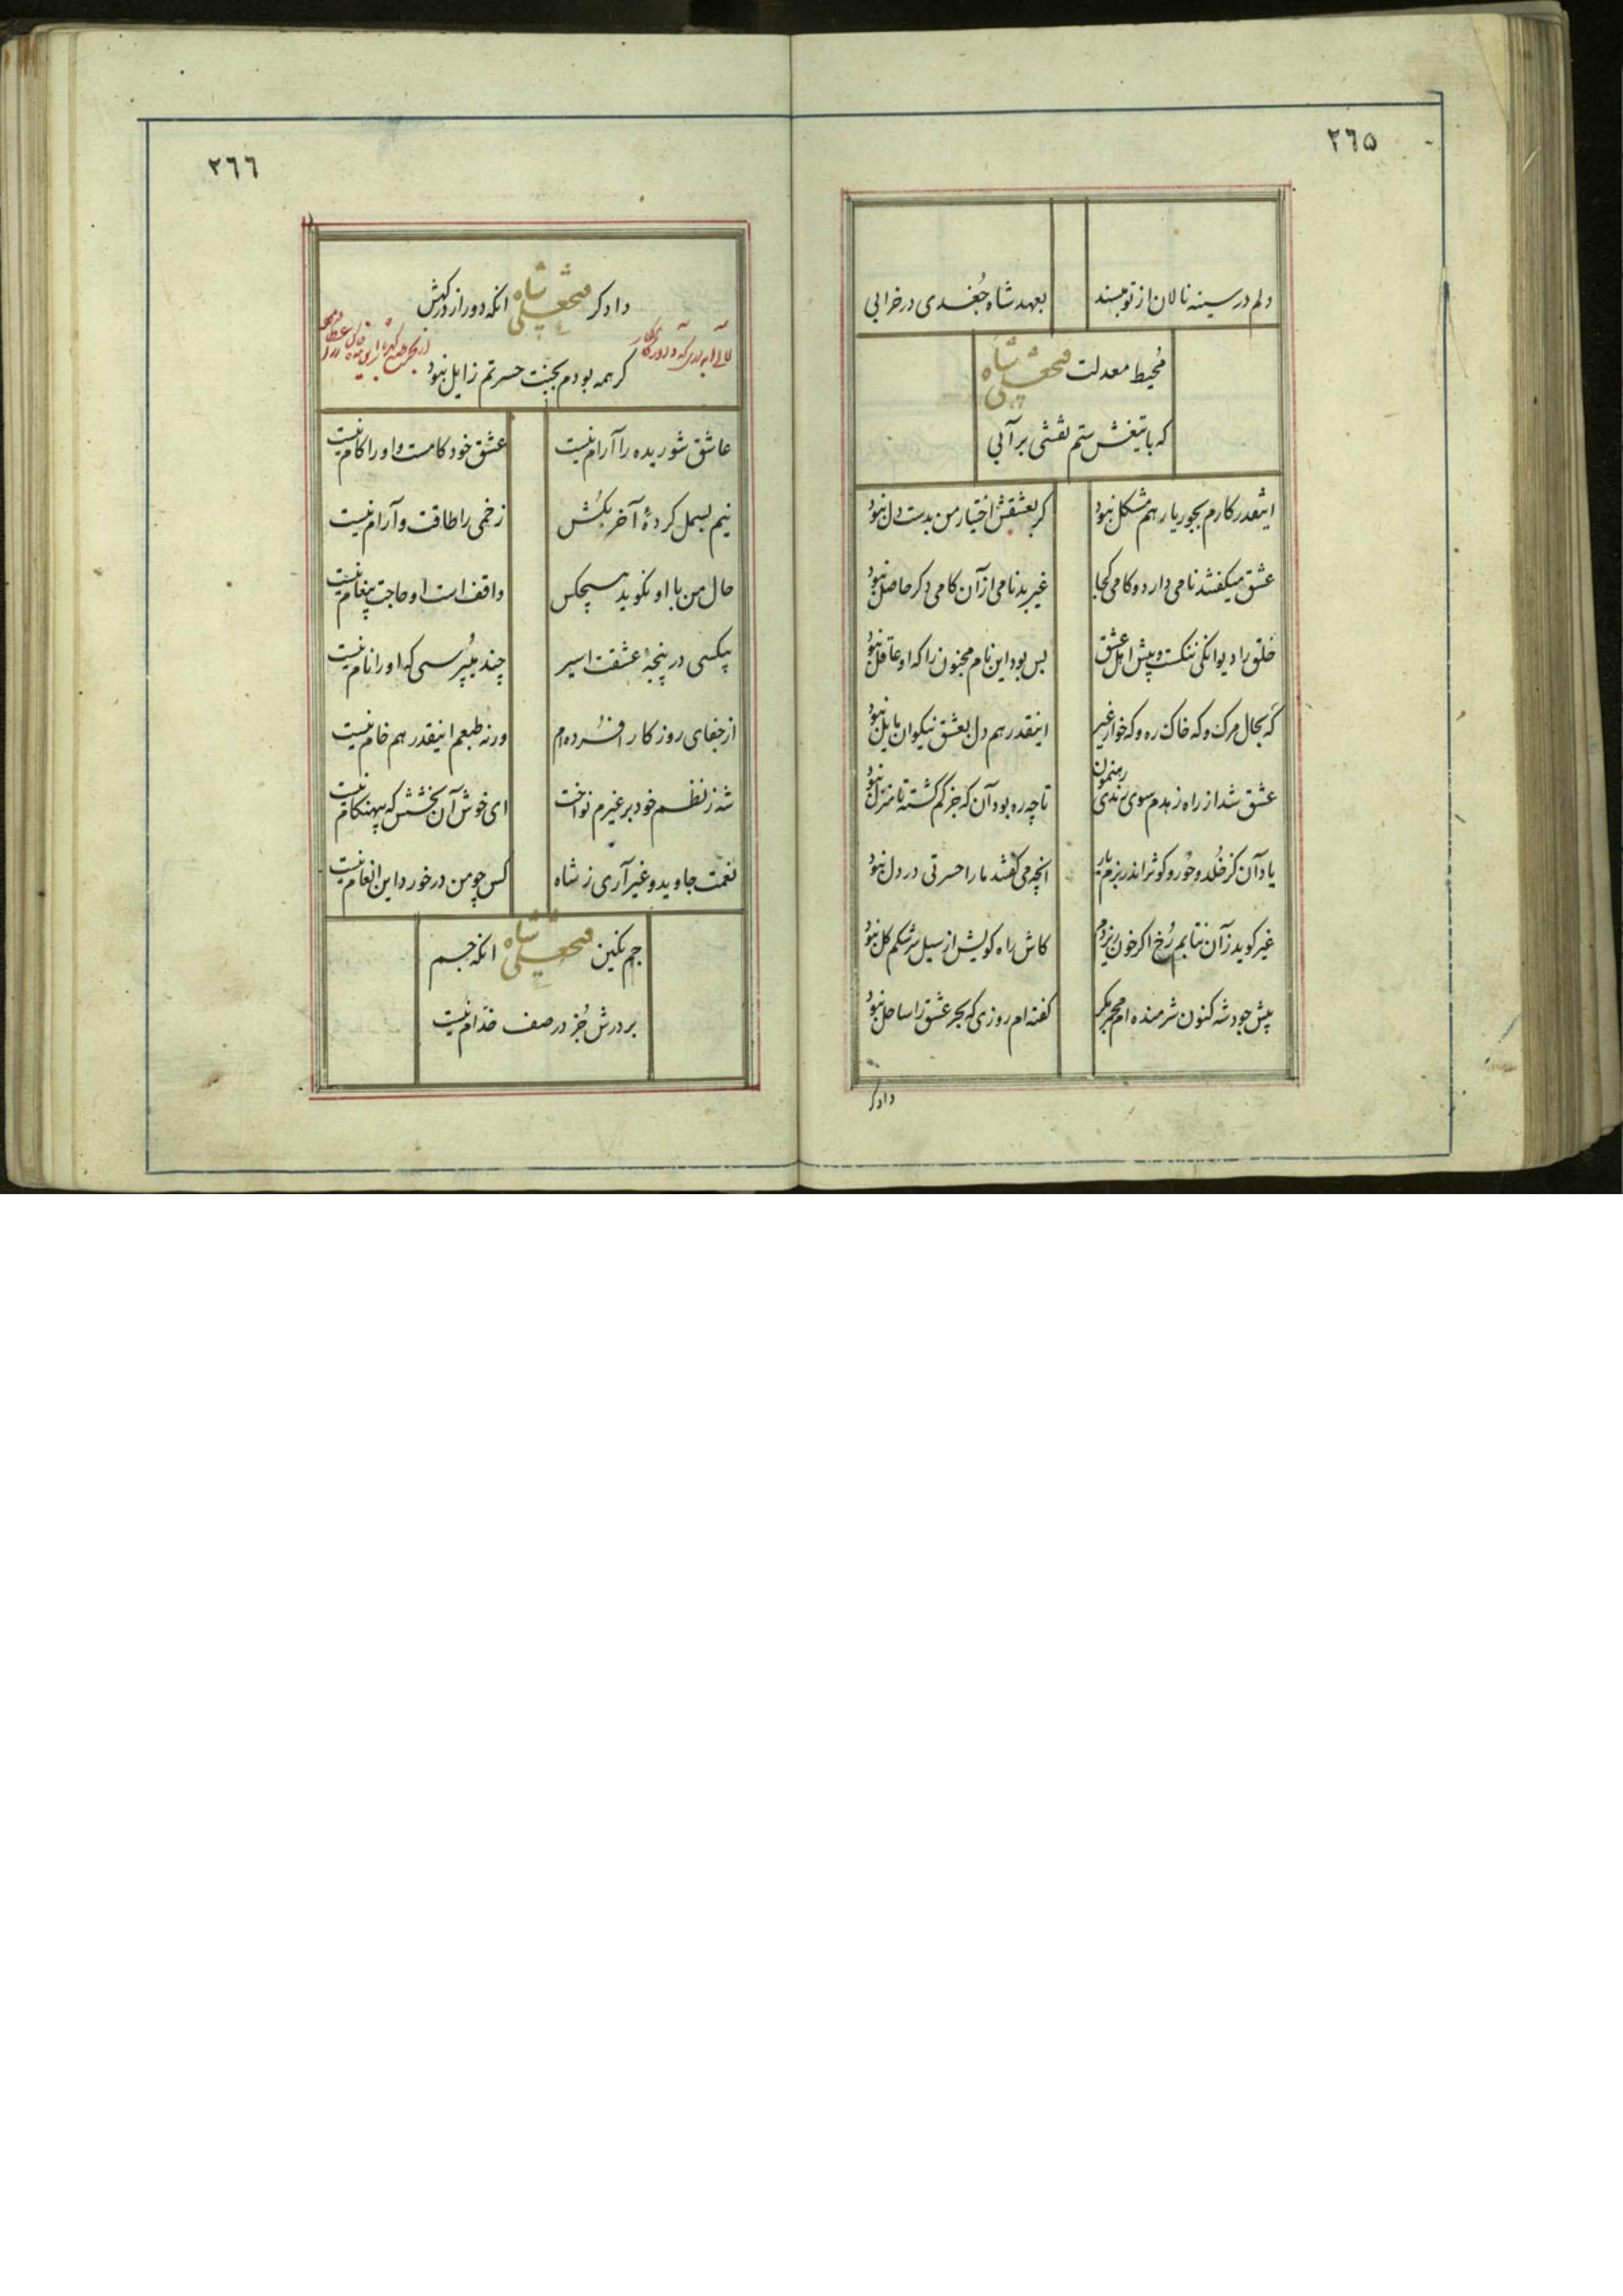 ٢٦٥
دلم در سینه نالان از تو مپسند بعهد شاه جُغدی در خرابی
مُحیط معدلت فتحعلی شاه
که با تیغش ستم نقشی بر آبی
اینقدر کارم بجور یار هم مشکل نبود کر بعشقش اختیار من بدست دل نبود
عشق میکفتند نامی دارد و کامی کجا غیر بدنامی از آن کامی دکر حاصل نبود
خلق را دیوانکی ننکست و پیش اهل عشق بس بود این نام مجنون را که او عاقل نبود
که بحال مرک و که خاک ره و که خوار غیر اینقدر هم دل بعشق نیکوان مایل نبود
عشق شد از راه زهدم سوی رندی رهنمون تا چه ره بود آن که جز کم کشته تا منزل نبود
یاد آن کز خُلد و حُور و کوثر اندر بزم یار انچه می کفتند ما را حسرتی در دل نبود
غیر کوید زآن نتابم رُخ اکر خون ریزدم کاش راه کویش از سیل سرشکم کل نبود
پیش جود شه کنون شرمنده ام مجمر مکر کفته ام روزی که بحر عشق را ساحل نبود
دادکر
٢٦٦
دادکر فتحعلی شاه انکه دور از درکهش
کر همه بودم بجنت حسرتم زایل نبود
عاشق شوریده را آرام نیست عشق خود کامست و او را کام نیست
نیم بسمل کردهٔ آخر بکُش زخمی را طاقت و آرام نیست
حال من با او نکوید هیچکس واقف است او حاجت پیغام نیست
بیکسی در پنجهٔ عشقت اسیر چند میپُرسی که او را نام نیست
از جفای روزکار افسُرده ام ورنه طبعم اینقدر هم خام نیست
شه ز نظم خود بر غیرم نواخت ای خوش آن بخشش که بیهنکام نیست
نعمت جاوید و غیر آری ز شاه کس چو من در خورد این انعام نیست
جم نکین فتحعلی شاه انکه جم
بر درش جُز در صف خدّام نیست